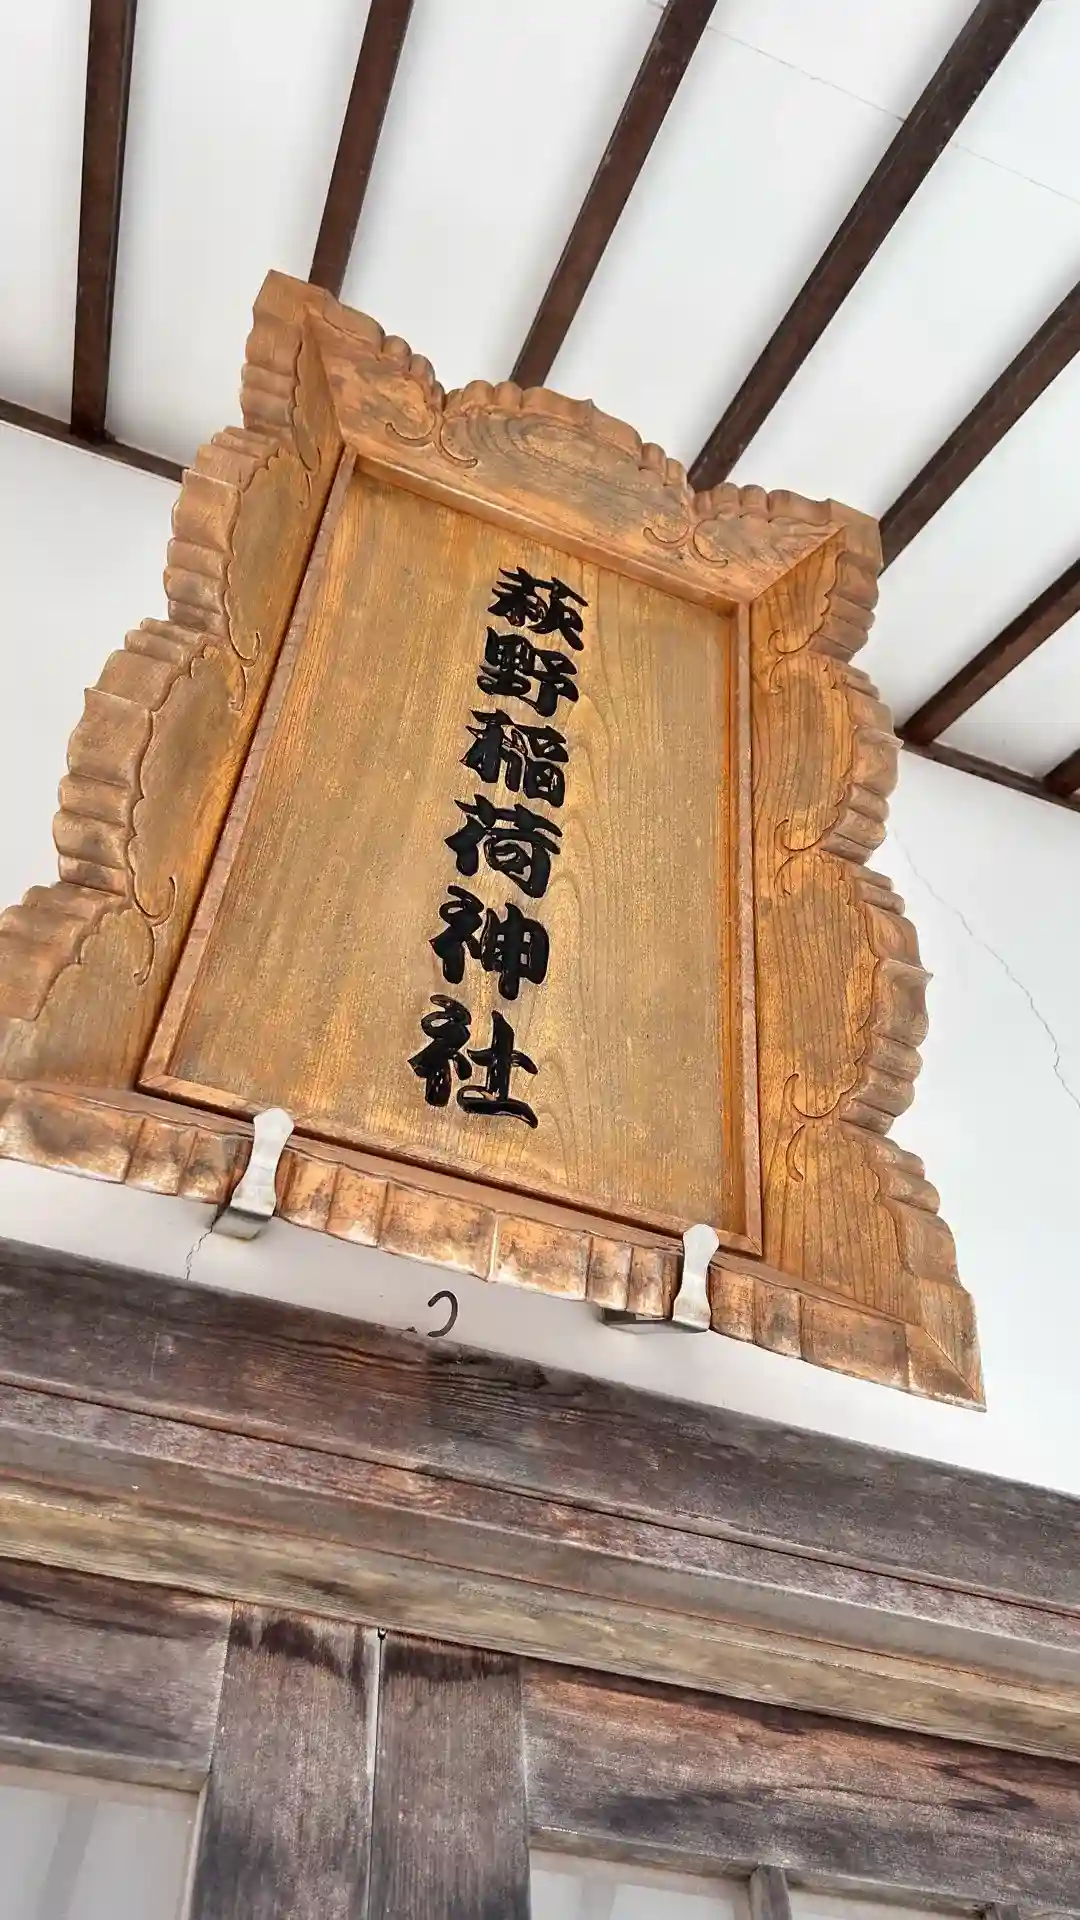 萩野稲荷神社